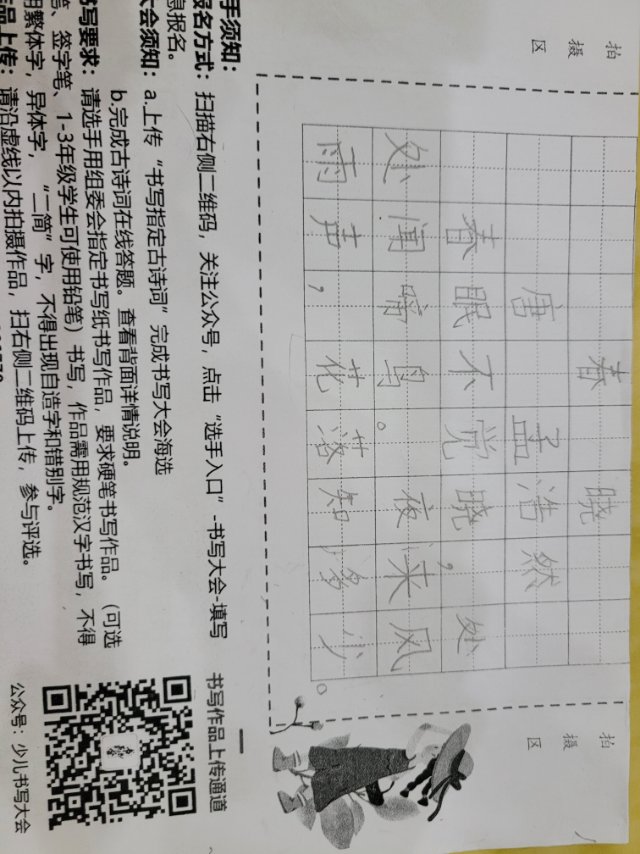 拍摄区
拍摄区
春晓
唐 孟浩然
春眠不觉晓，处
处闻啼鸟。夜来风
雨声，花落知多少。
手须知：
报名方式：扫描右侧二维码，关注公众号，点击“选手入口”-书写大会-填写
息报名。
大会须知：a.上传“书写指定古诗词”完成书写大会海选
b.完成古诗词在线答题。查看背面详情说明。
书写要求：请选手用组委会指定书写纸书写作品，要求硬笔书写作品。（可选
笔、签字笔、1-3年级学生可使用铅笔）书写，作品需用规范汉字书写，不得
用繁体字，异体字，“二简”字，不得出现自造字和错别字。
品上传：请沿虚线以内拍摄作品，扫右侧二维码上传，参与评选。
书写作品上传通道
公众号：少儿书写大会